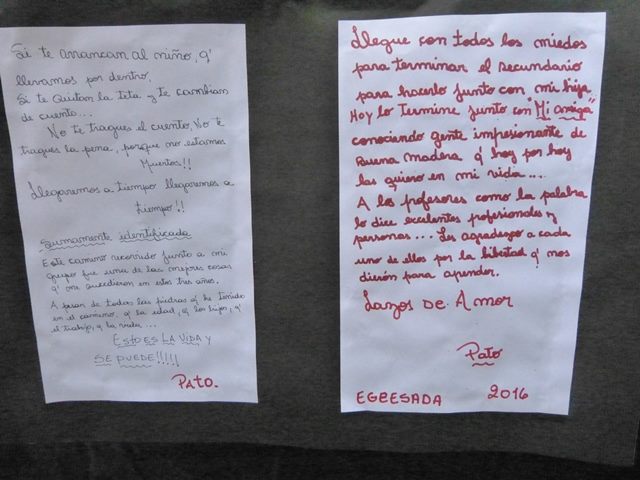 Si te arrancan al niño, q'
llevamos por dentro,
Si te Quitan la teta y te cambian
de cuento...
No te tragues el cuento, No te
tragues la pena, porque no estamos
Muertos!!
Llegaremos a tiempo llegaremos a
tiempo!!
Sumamente identificada
Este camino recorrido junto a mi
grupo fue una de las mejores cosas
q' me sucedieron en estos tres años.
A pesar de todas las piedras q' he tenido
en el camino. q la edad, q los hijos, q'
el trabajo, q la vida...
ESTO ES LA VIDA Y
SE PUEDE!!!!!
PATO.
Llegue con todos los miedos
para terminar el secundario
para hacerlo junto con mi hija
Hoy lo Termine junto con "Mi amiga"
conociendo gente impresionante de
Buena madera q' hoy por hoy
las quiero en mi vida...
A los profesores como la palabra
lo dice excelentes profesionales y
personas... Les agradezco a cada
uno de ellos por la libertad q' nos
dierón para aprender.
Lazos de Amor
Pato
EGRESADA 2016